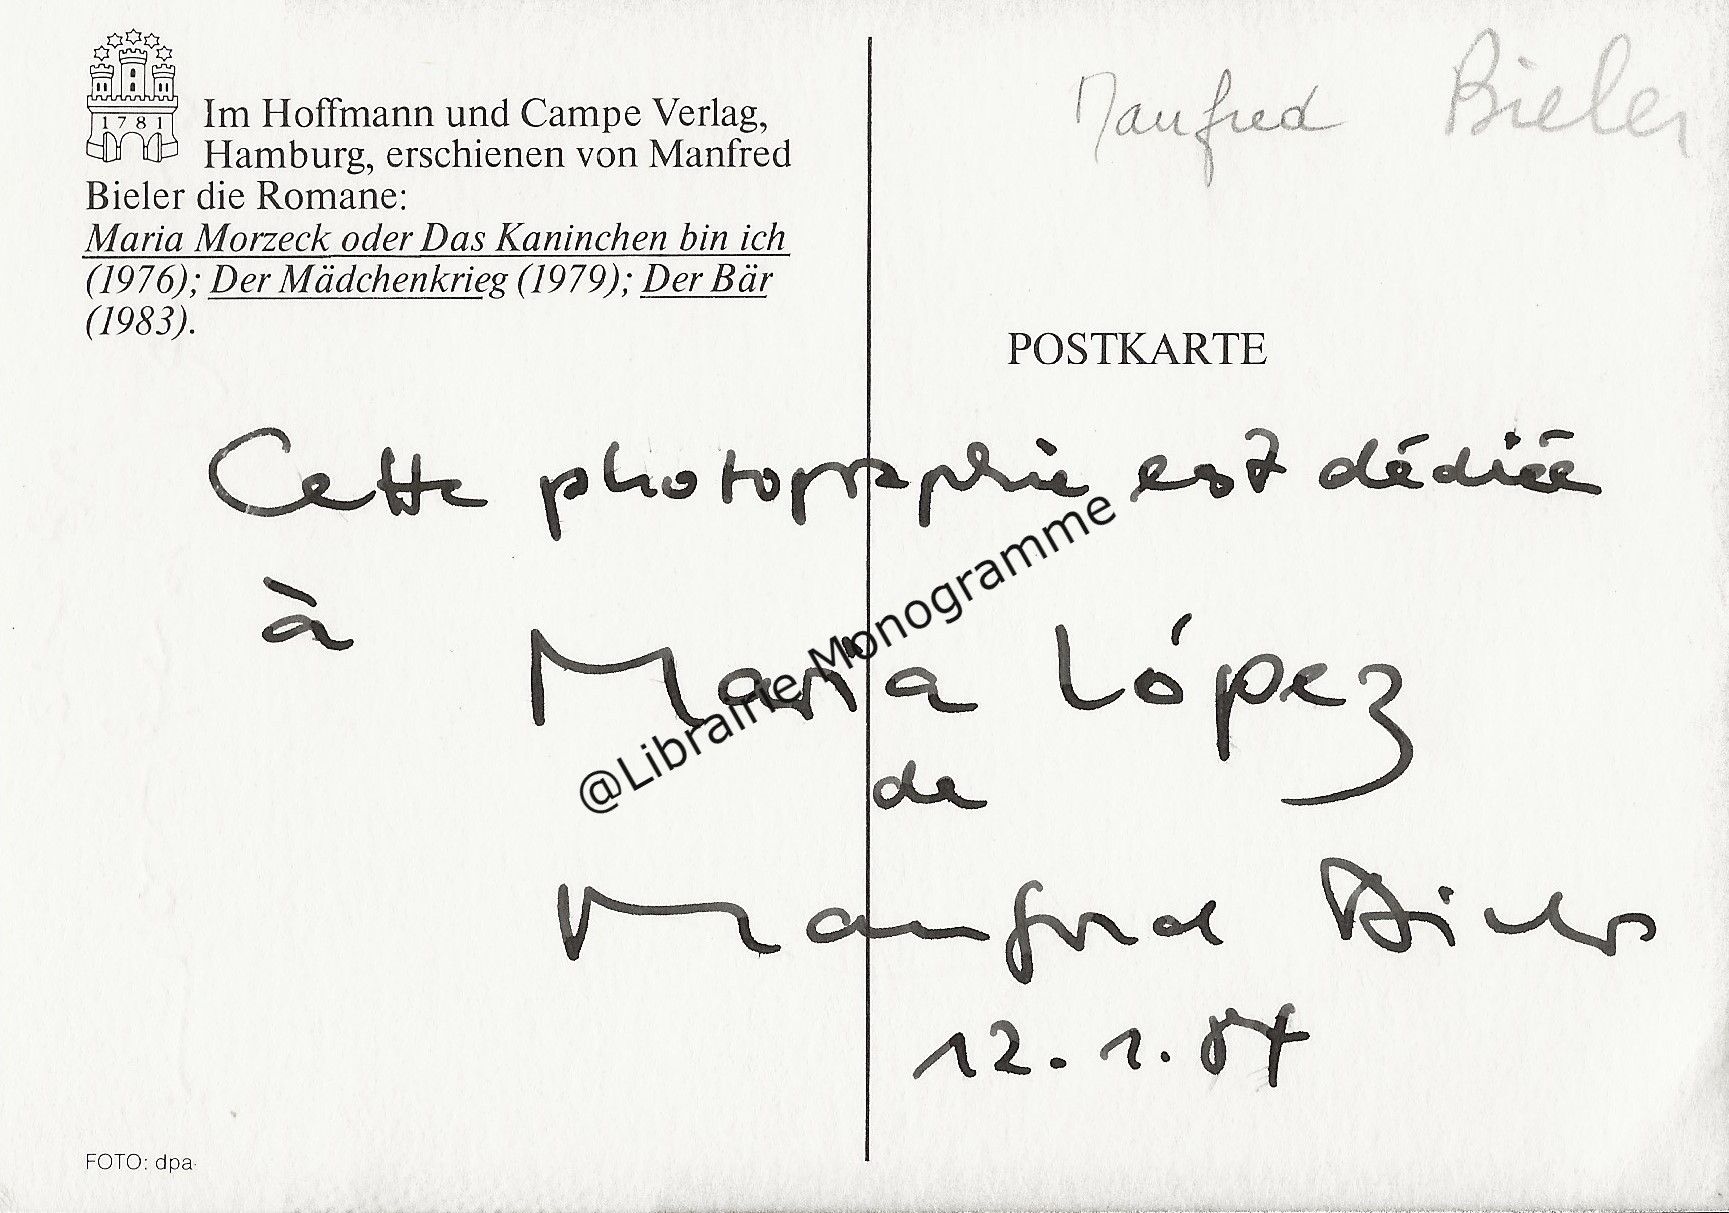 1781
Im Hoffmann und Campe Verlag,
Hamburg, erschienen von Manfred
Bieler die Romane:
Maria Morzeck oder Das Kaninchen bin ich
(1976); Der Mädchenkrieg (1979); Der Bär
(1983).
Manfred Bieler
POSTKARTE
Cette photographie est dédiée
à
Maria López
de
Manfred Bieler
12.1.84
@Librairie Monogramme
FOTO: dpa